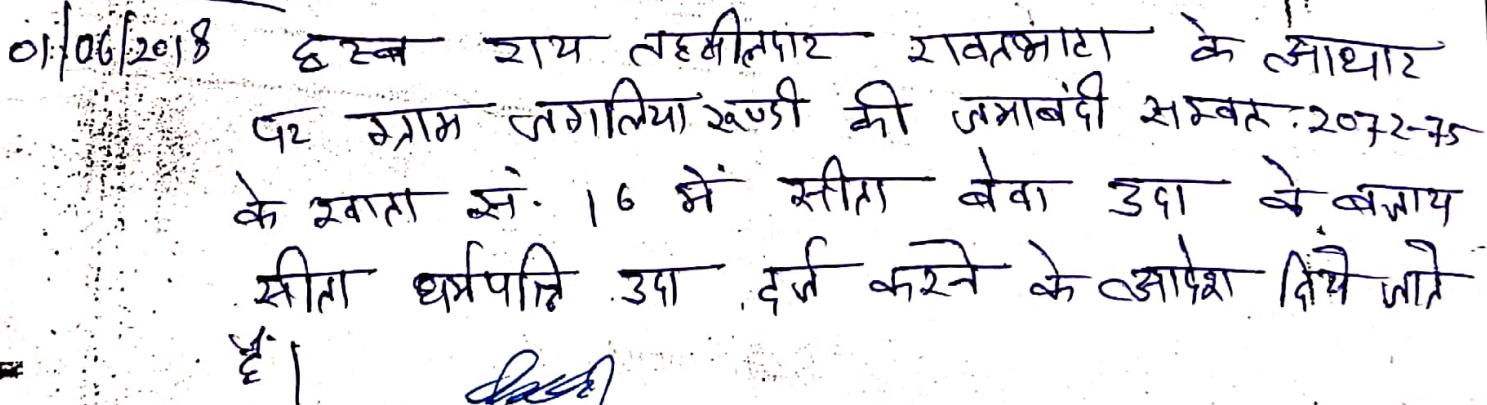 01/06/2018 हस्ब राय तहसीलदार रावतभाटा के आधार
पर ग्राम जगालिया खण्डी की जमाबंदी सम्वत 2072-75
के खाता सं. 16 में सीता बेवा उदा के बजाय
सीता धर्मपत्नि उदा दर्ज करने के आदेश दिये जाते
हैं।